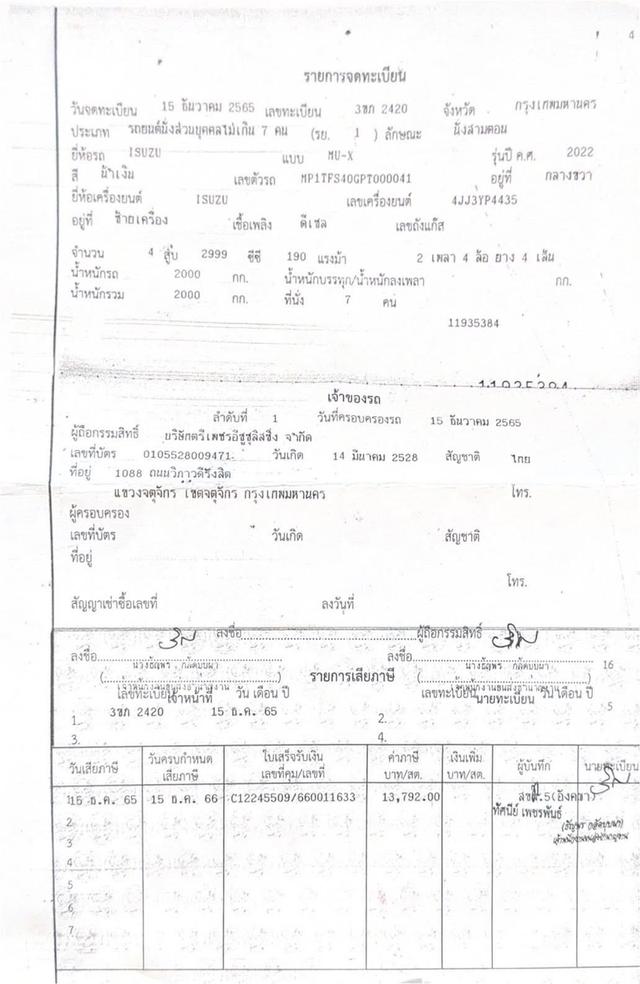 4
รายการจดทะเบียน
วันจดทะเบียน 15 ธันวาคม 2565 เลขทะเบียน 3ขภ 2420 จังหวัด กรุงเทพมหานคร
ประเภท รถยนต์นั่งส่วนบุคคลไม่เกิน 7 คน (รย. 1 ) ลักษณะ นั่งสามตอน
ยี่ห้อรถ ISUZU แบบ MU-X รุ่นปี ค.ศ. 2022
สี น้ำเงิน เลขตัวรถ MP1TFS40GPT000041 อยู่ที่ กลางขวา
ยี่ห้อเครื่องยนต์ ISUZU เลขเครื่องยนต์ 4JJ3YP4435
อยู่ที่ ซ้ายเครื่อง เชื้อเพลิง ดีเซล เลขถังแก๊ส
จำนวน 4 สูบ 2999 ซีซี 190 แรงม้า 2 เพลา 4 ล้อ ยาง 4 เส้น
น้ำหนักรถ 2000 กก. น้ำหนักบรรทุก/น้ำหนักลงเพลา กก.
น้ำหนักรวม 2000 กก. ที่นั่ง 7 คน
11935384
11935384
เจ้าของรถ
ลำดับที่ 1 วันที่ครอบครองรถ 15 ธันวาคม 2565
ผู้ถือกรรมสิทธิ์ บริษัทตรีเพชรอีซูซุลิสซิ่ง จำกัด
เลขที่บัตร 0105528009471 วันเกิด 14 มีนาคม 2528 สัญชาติ ไทย
ที่อยู่ 1088 ถนนวิภาวดีรังสิต
แขวงจตุจักร เขตจตุจักร กรุงเทพมหานคร โทร.
ผู้ครอบครอง
เลขที่บัตร วันเกิด สัญชาติ
ที่อยู่
โทร.
สัญญาเช่าซื้อเลขที่ ลงวันที่
ลงชื่อ ผู้ถือกรรมสิทธิ์
ลงชื่อ ลงชื่อ 16
รายการเสียภาษี
เจ้าหน้าที่ นายทะเบียน
เลขทะเบียน วัน เดือน ปี เลขทะเบียน วัน เดือน ปี 5
1. 3ขภ 2420 15 ธ.ค. 65 2.
3. 4.
วันเสียภาษี วันครบกำหนดเสียภาษี ใบเสร็จรับเงิน เลขที่คุม/เลขที่ ค่าภาษี บาท/สต. เงินเพิ่ม บาท/สต. ผู้บันทึก นายทะเบียน
1 15 ธ.ค. 65 15 ธ.ค. 66 C12245509/660011633 13,792.00
ทัศนีย์ เพชรพันธ์
2
3
4
5
6
7